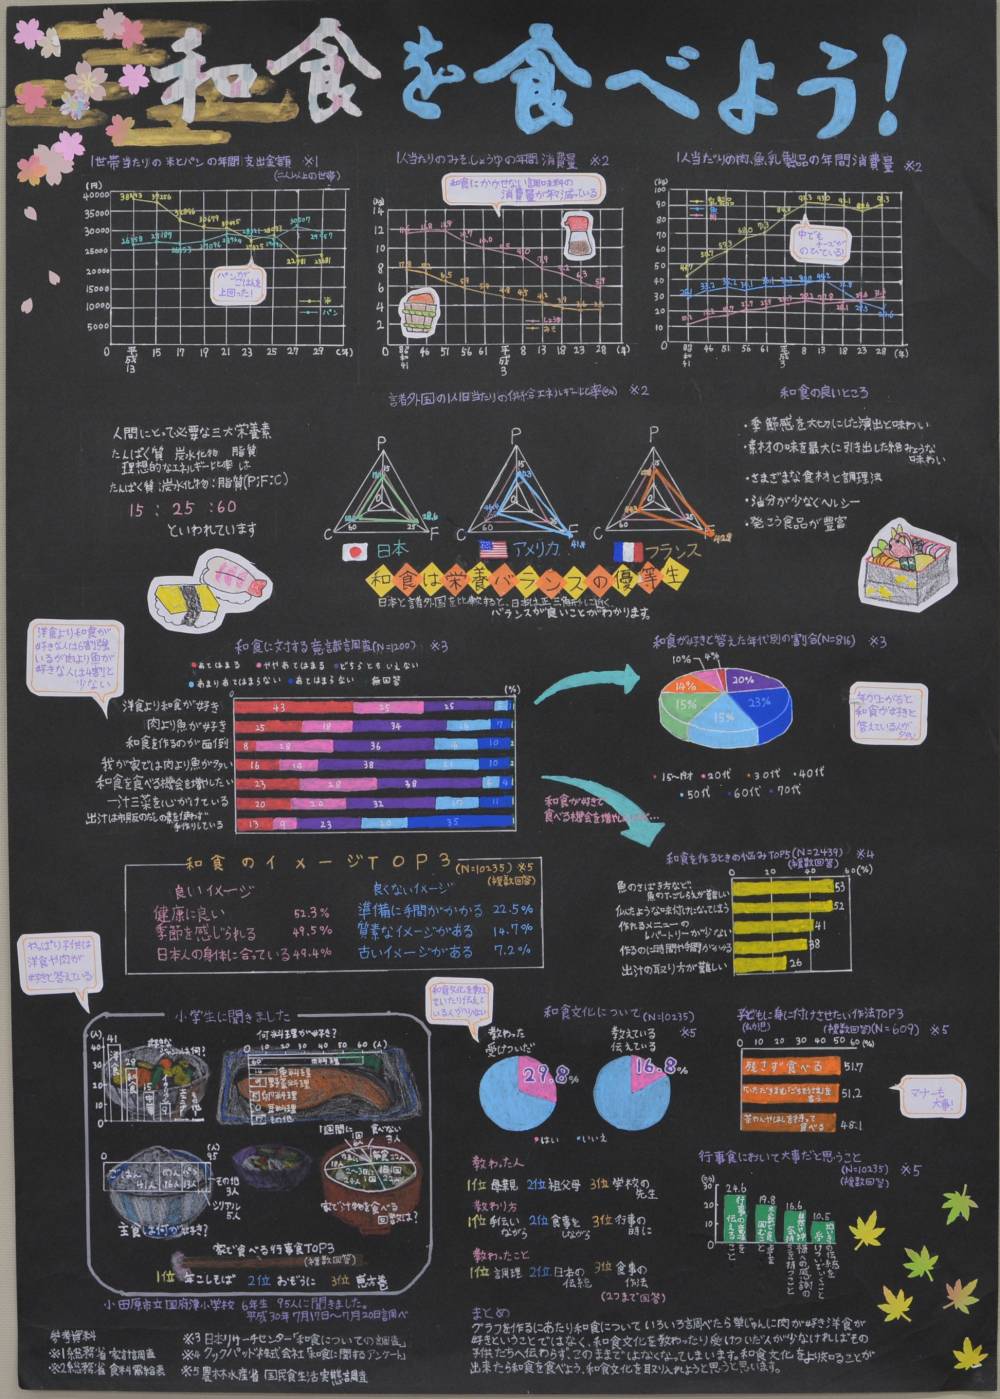 和食を食べよう!
1世帯当たりの米とパンの年間支出金額 ※1
(二人以上の世帯)
(円)
40000
35000
30000
25000
20000
15000
10000
5000
0
パンが
ごはんを
上回った!
米
パン
平成13 15 17 19 21 23 25 27 29 (年)
1人当たりのみそ、しょうゆの年間消費量 ※2
和食にかかせない調味料の
消費量が年々減っている
(kg)
14
12
10
8
6
4
2
0
しょうゆ
みそ
昭和41 46 51 56 61 平成3 8 13 18 23 28 (年)
1人当たりの肉、魚、乳製品の年間消費量 ※2
(kg)
100
90
80
70
60
50
40
30
20
10
0
乳製品
魚
肉
中でも
チーズが
のびている!
昭和41 46 51 56 61 平成3 8 13 18 23 28 (年)
人間にとって必要な三大栄養素
たんぱく質 炭水化物 脂質
理想的なエネルギー比率は
たんぱく質:炭水化物:脂質(P:F:C)
15 : 25 : 60
といわれています
諸外国の1人1日当たりの供給エネルギー比率(%) ※2
P
C
F
日本
P
C
F
アメリカ
P
C
F
フランス
和食は栄養バランスの優等生
日本と諸外国を比較すると、日本は正三角形に近く、
バランスが良いことがわかります。
和食の良いところ
・季節感を大切にした演出と味わい
・素材の味を最大に引き出した絶みょうな
味わい
・さまざまな食材と調理法
・油分が少なくヘルシー
・発こう食品が豊富
洋食より和食が
好きな人は6割強
いるが肉より魚が
好きな人は4割と
少ない
和食に対する意識調査(N=1200) ※3
あてはまる ややあてはまる どちらともいえない
あまりあてはまらない あてはまらない 無回答
(%)
洋食より和食が好き 43 25 25
肉より魚が好き 25 18 34
和食を作るのが面倒 8 28 36
我が家では肉より魚が多い 16 14 38
和食を食べる機会を増やしたい 23 28 38
一汁三菜を心がけている 20 20 32
出汁は市販のだしの素を使わず
手作りしている 13 9 23 20 35
和食が好きと答えた年代別の割合(N=816) ※3
4%
10%
14%
15%
15%
23%
20%
・15~19才 ・20代 ・30代 ・40代
・50代 ・60代 ・70代
年が上がると
和食が好きと
答えている人が
多い
和食が好きで
食べる機会を増やしたいが…
和食のイメージTOP3 (N=10235) ※5
(複数回答)
良いイメージ
健康に良い 52.3%
季節を感じられる 49.5%
日本人の身体に合っている 49.4%
良くないイメージ
準備に手間がかかる 22.5%
質素なイメージがある 14.7%
古いイメージがある 7.2%
和食を作るときの悩みTOP5(N=2439) ※4
(複数回答)
0 20 40 60(%)
魚のさばき方など、
魚の下ごしらえが難しい 53
似たような味付けになってしまう 52
作れるメニューの
レパートリーが少ない 41
作るのに時間や手間がかかる 38
出汁の取り方が難しい 26
やっぱり子供は
洋食や肉が
好きと答えている
小学生に聞きました
好きなジャンルは何?
41
洋食
28
和食
15
中華
何料理が好き?
0 10 20 30 40 50 60 (人)
60 肉料理
14 魚料理
野菜料理
卵料理
豆料理
その他
(人)
0 95
ごはん 41人
めん 16人
パン 13人
その他
3人
シリアル
5人
主食は何が好き?
1週間に 食べない
3人
家で汁物を食べる
回数は?
家で食べる行事食TOP3
(複数回答)
1位 年こしそば 2位 おぞうに 3位 恵方巻
小田原市立国府津小学校 6年生 95人に聞きました。
平成30年7月17日~7月20日調べ
和食文化を教え
ていたり伝えて
いる人が少ない
和食文化について(N=10235)
※5
教わった
受けついだ
教えている
伝えている
29.8%
16.8%
・はい ・いいえ
教わった人
1位 母親 2位 祖父母 3位 学校の
先生
教わり方
1位 手伝い
ながら 2位 食事を
しながら 3位 行事の
時に
教わったこと
1位 調理 2位 日本の
伝統 3位 食事の
作法
(2つまで回答)
子どもに身に付けさせたい作法TOP3
(幼児) (複数回答)(N=609) ※5
0 10 20 30 40 50 60 (%)
残さず食べる 51.7
いただきます、ごちそうさまを言う 51.2
茶わんやはしを持って
食べる 48.1
マナーも
大事!
行事食において大事だと思うこと
(N=10235) ※5
(複数回答)
(%)
30
20
10
0
24.6
19.8
16.6
10.5
まとめ
グラフを作るにあたり和食についていろいろ調べたら単じゅんに肉が好き洋食が
好きということではなく、和食文化を教わったり受けついだ人が少なければその
子供たちへ伝わらず、このままではなくなってしまいます。和食文化をより知ることが
出来たら和食を食べよう、和食文化を取り入れようと思うと思います。
参考資料
※1 総務省 家計調査
※2 総務省 食料需給表
※3 日本リサーチセンター「和食についての調査」
※4 クックパッド株式会社「和食に関するアンケート」
※5 農林水産省 国民食生活実態調査